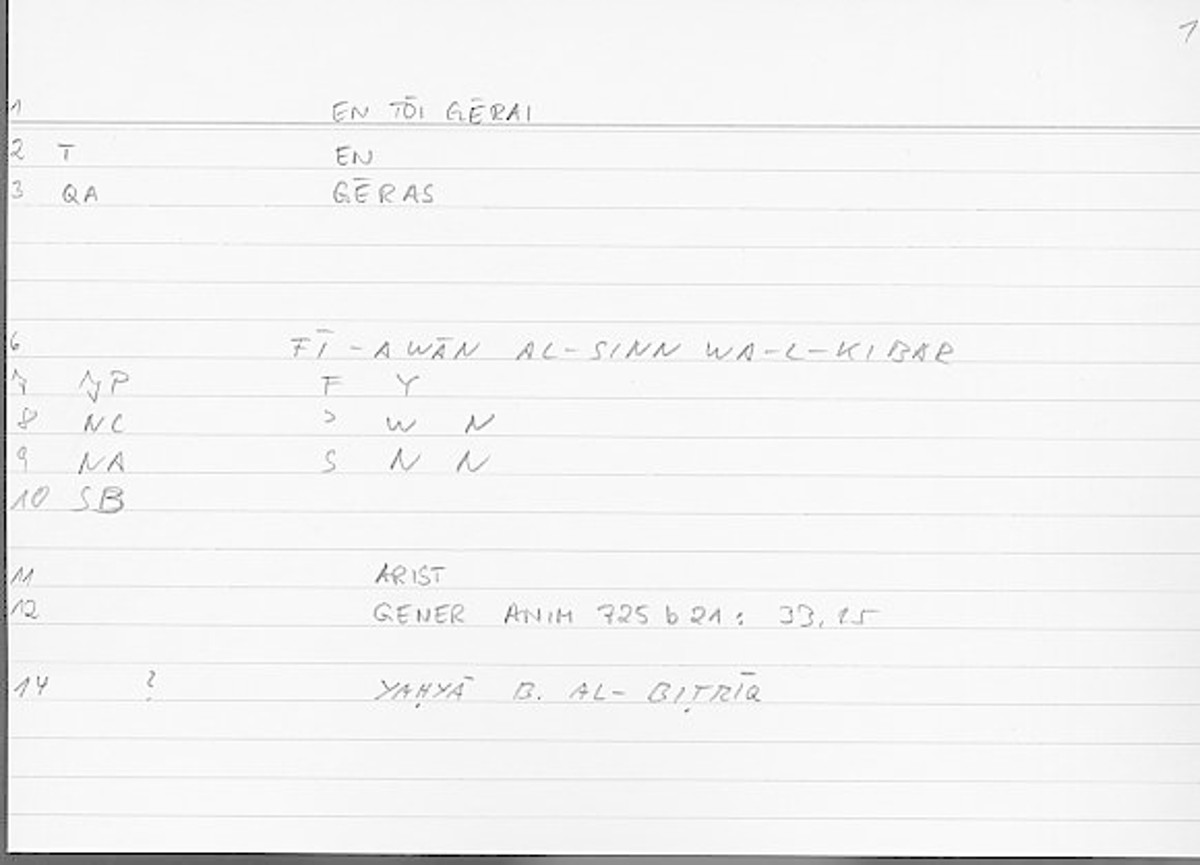 1
1 EN TŌI GĒRAI
2 T EN
3 QA GĒRAS
6 FĪ-AWĀN AL-SINN WA-L-KIBAR
7 NP F Y
8 NC ʾ W N
9 NA S N N
10 SB
11 ARIST
12 GENER ANIM 725 b 21: 33,15
14 ? YAḤYĀ B. AL-BIṬRĪQ